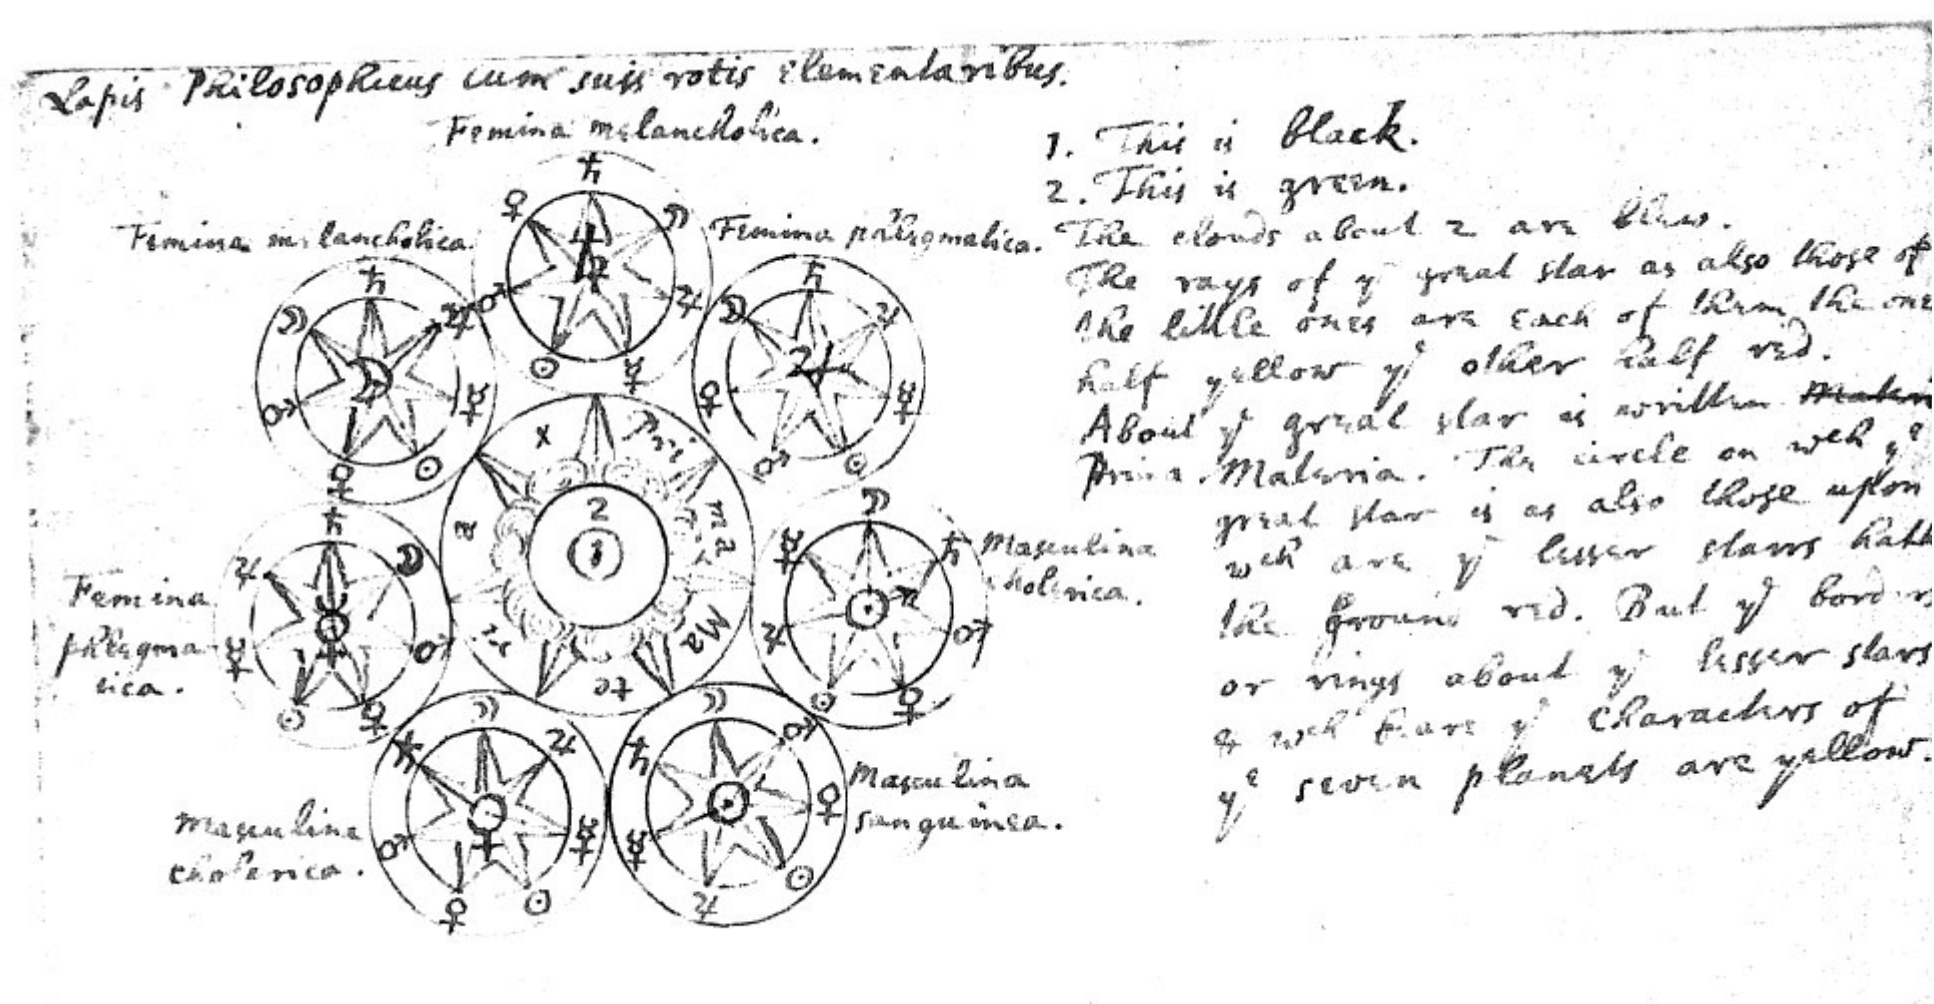 Lapis Philosophicus cum suis rotis elementaribus.
Femina melancholica.
Femina melancholica.
Femina phlegmatica.
Femina
phlegma
tica.
Masculina
cholerica.
Masculina
cholerica.
Masculina
sanguinea.
2
1
Pri
ma
Ma
te
1. This is black.
2. This is green.
The clouds about 2 are blew.
The rays of ye great star as also those of
the little ones are each of them the one
half yellow ye other half red.
About ye great star is written
Prima Materia. The circle on wch ye
great star is as also those upon
wch are ye lesser starrs hath
the ground red. But ye borders
or rings about ye lesser stars
& wch beare ye characters of
ye seven planets are yellow.